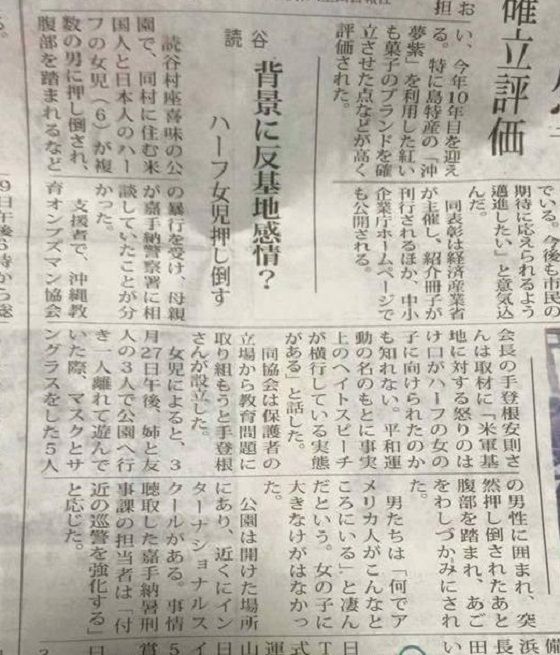 確立評価
担
おい、今年10年目を迎え
る。特に島特産の「沖
夢紫」を利用した紅い
も菓子のブランドを確
立させた点などが高く
評価された。
でいる。今後も市民の
期待に応えられるよう
邁進したい」と意気込
んだ。
同表彰は経済産業省
が主催し、紹介冊子が
刊行されるほか、中小
企業庁ホームページで
も公開される。
読谷
背景に反基地感情？
ハーフ女児押し倒す
読谷村座喜味の公
園で、同村に住む米
国人と日本人のハー
フの女児（6）が複
数の男に押し倒され、
腹部を踏まれるなど
の暴行を受け、母親
が嘉手納警察署に相
談していたことが分
かった。
支援者で、沖縄教
育オンブズマン協会
会長の手登根安則さ
んは取材に「米軍基
地に対する怒りのは
け口がハーフの女の
子に向けられたのか
も知れない。平和運
動の名のもとに事実
上のヘイトスピーチ
が横行している実態
がある」と話した。
同協会は保護者の
立場から教育問題に
取り組もうと手登根
さんが設立した。
女児によると、3
月27日午後、姉と友
人の3人で公園へ行
き、一人離れて遊んで
いた際、マスクとサ
ングラスをした5人
の男性に囲まれ、突
然押し倒されたあと
腹部を踏まれ、あご
をわしづかみにされ
た。
男たちは「何でア
メリカ人がこんなと
ころにいる」と凄ん
だという。女の子に
大きなけがはなかっ
た。
公園は開けた場所
にあり、近くにイン
ターナショナルス
クールがある。事情
聴取した嘉手納署刑
事課の担当者は「付
近の巡警を強化する」
と応じた。
9日午後6時から総